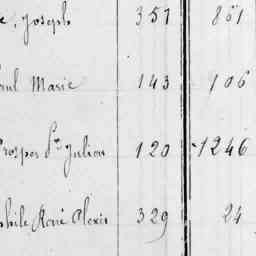 e, Joseph 357 861
aul Marie 143 106
Prosper Jn Julien 120 1246
phile René Alexis 329 24